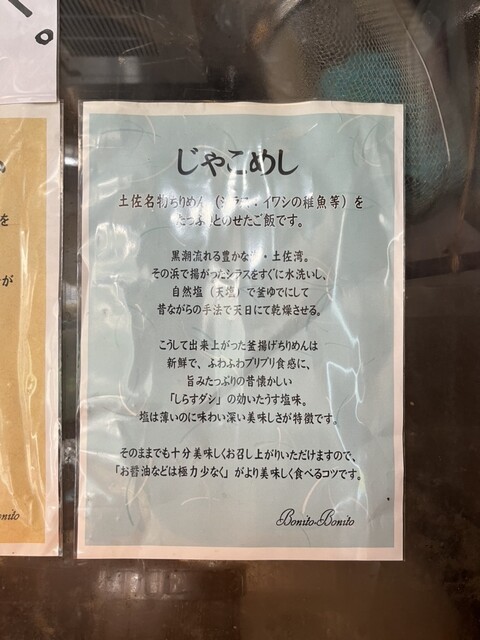 じゃこめし
土佐名物ちりめん(シラス:イワシの稚魚等)を
たっぷりとのせたご飯です。
黒潮流れる豊かな海・土佐湾。
その浜で揚がったシラスをすぐに水洗いし、
自然塩(天塩)で釜ゆでにして
昔ながらの手法で天日にて乾燥させる。
こうして出来上がった釜揚げちりめんは
新鮮で、ふわふわプリプリ食感に、
旨みたっぷりの昔懐かしい
「しらすダシ」の効いたうす塩味。
塩は薄いのに味わい深い美味しさが特徴です。
そのままでも十分美味しくお召し上がりいただけますので、
「お醤油などは極力少なく」がより美味しく食べるコツです。
Bonito-Bonito
を
が
nito
。